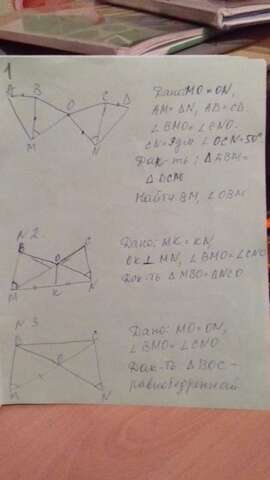 1
A B C D
O
M N
Дано: MO = ON,
AM = DN, AB = CD.
∠BMO = ∠CNO.
CN = 7дм ∠OCN = 50°
Док-ть: △ABM =
△DCN
Найти BM, ∠OBM
N 2.
B O C
M K N
Дано: MK = KN,
OK ⊥ MN, ∠BMO = ∠CNO
Док-ть △MBO = △NCO
N 3
B C
O
M N
Дано: MO = ON,
∠BMO = ∠CNO.
Док-ть △BOC –
равнобедренный